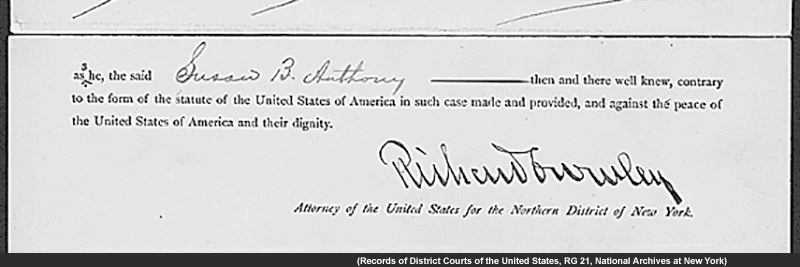 as she, the said Susan B. Anthony then and there well knew, contrary
to the form of the statute of the United States of America in such case made and provided, and against the peace of
the United States of America and their dignity.
Richard Crowley
Attorney of the United States for the Northern District of New York.
(Records of District Courts of the United States, RG 21, National Archives at New York)